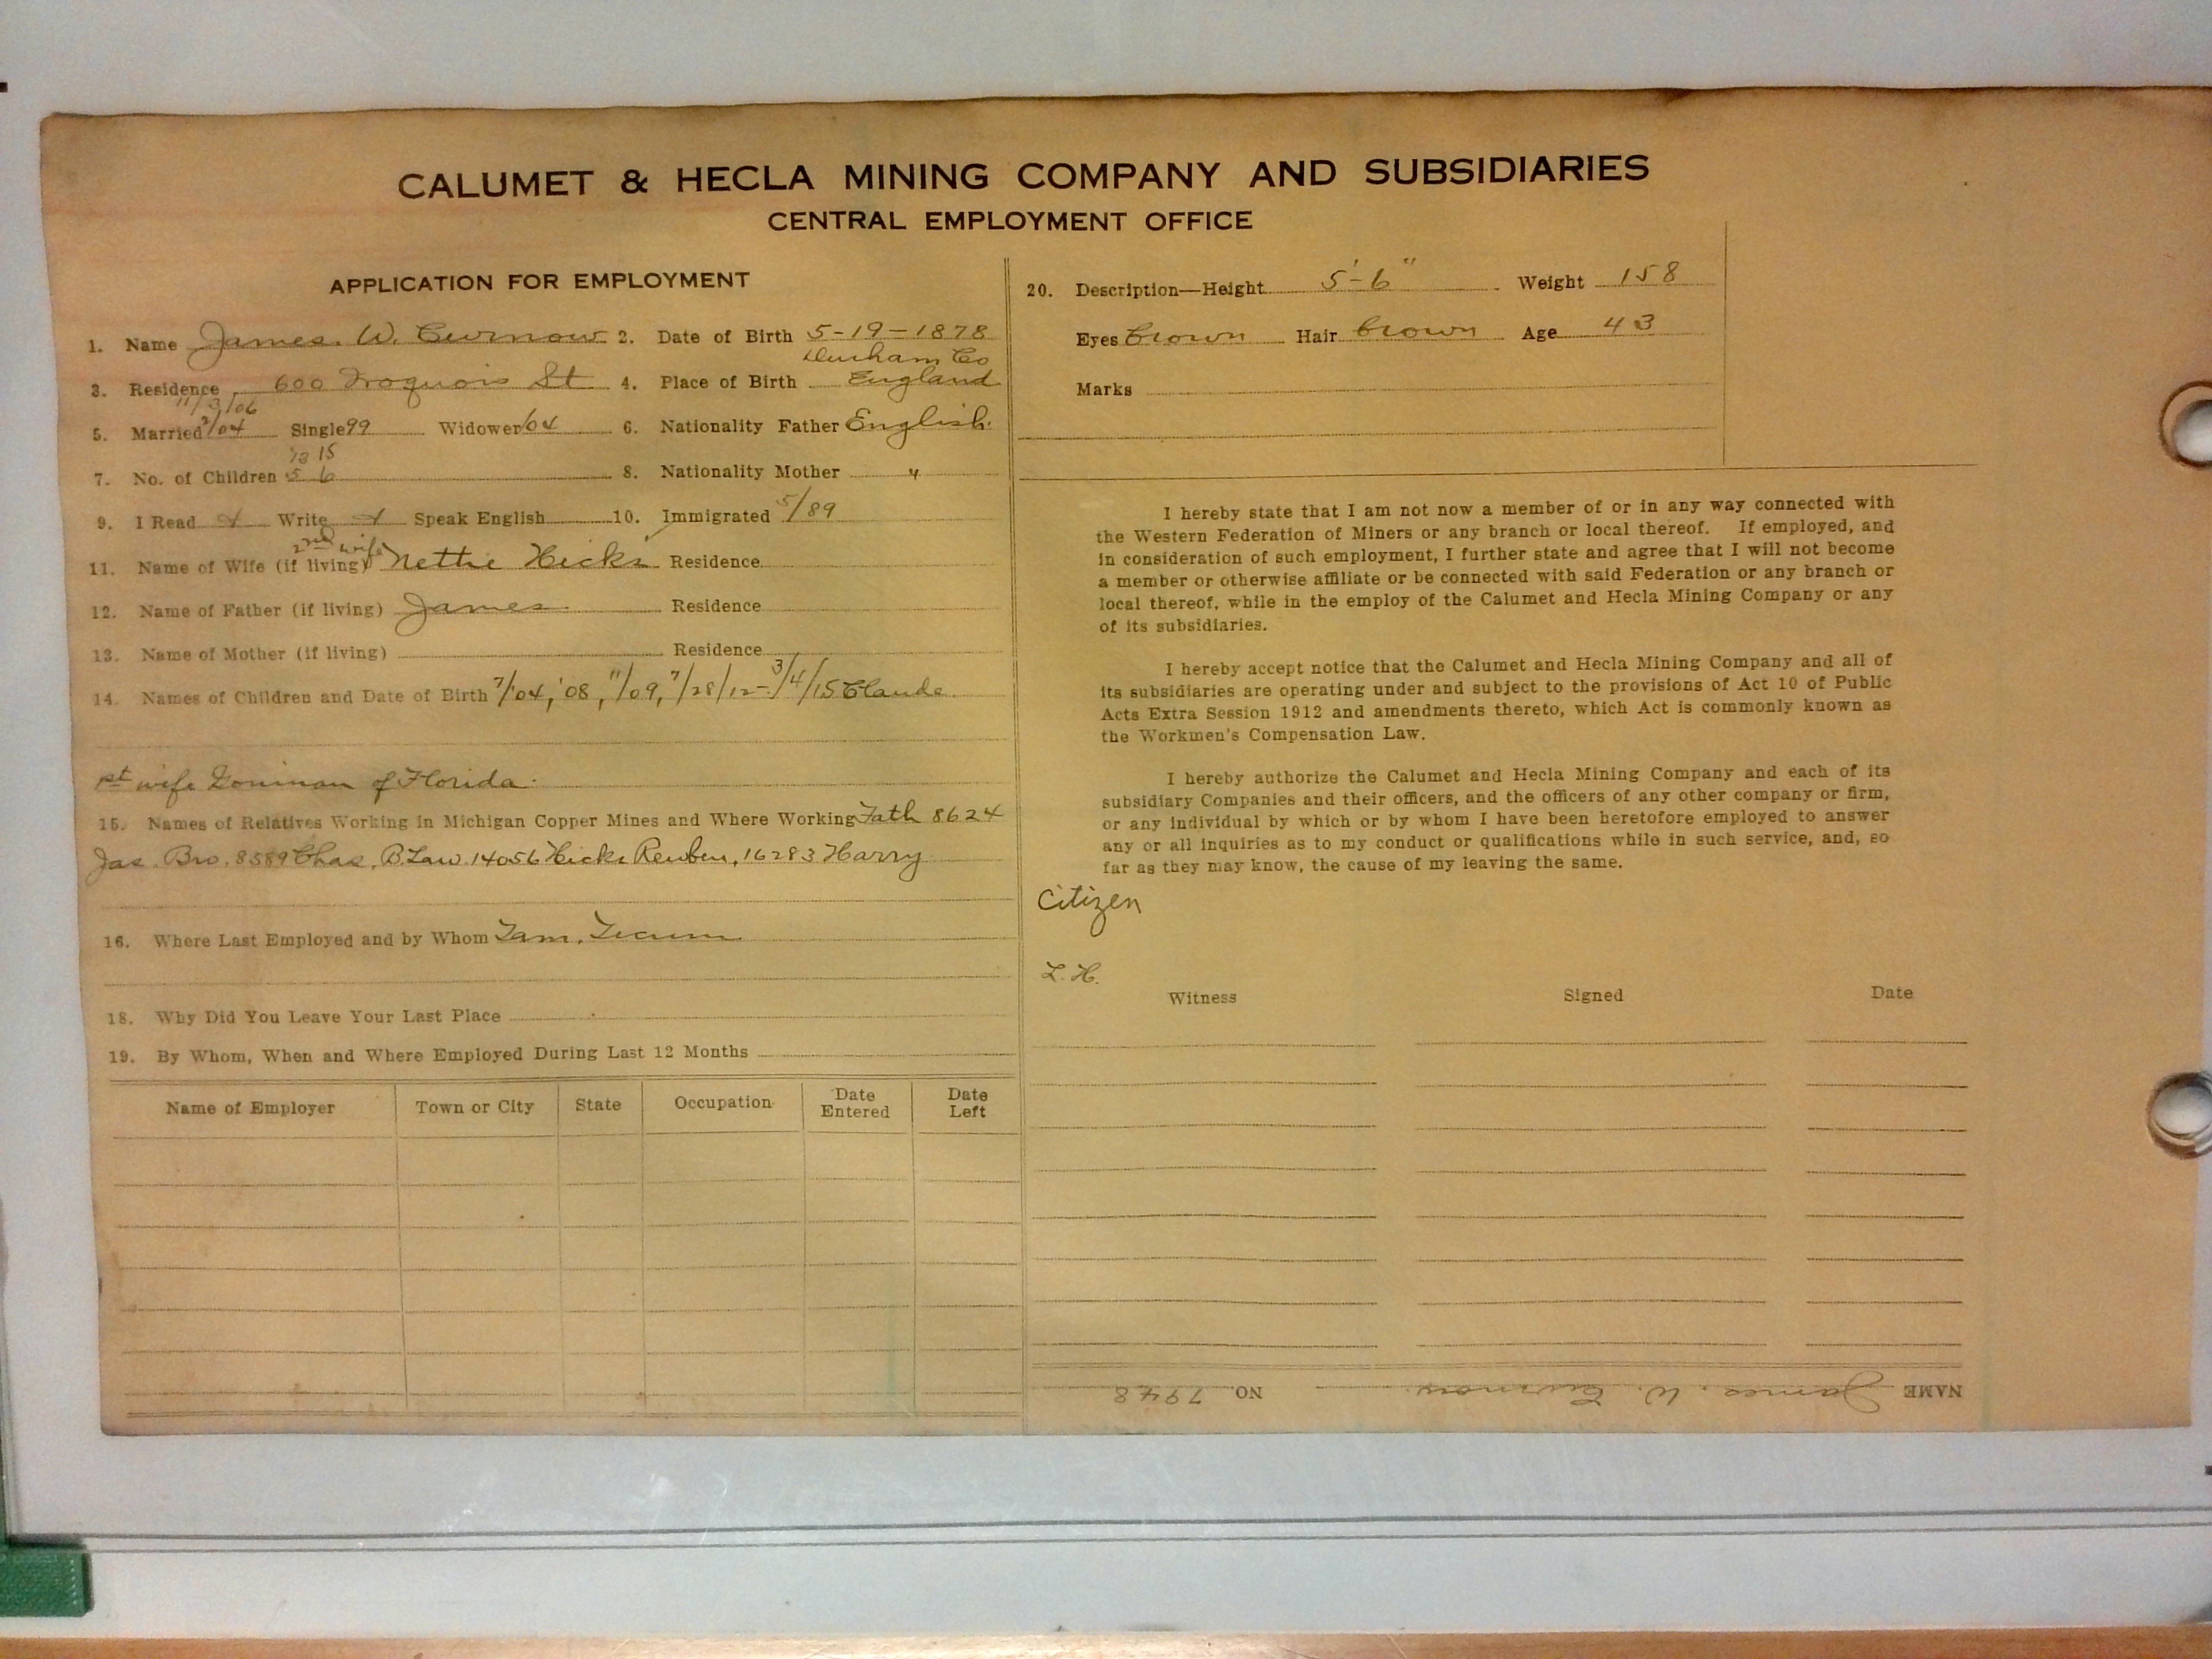 CALUMET & HECLA MINING COMPANY AND SUBSIDIARIES
CENTRAL EMPLOYMENT OFFICE
APPLICATION FOR EMPLOYMENT
1. Name James. W. Curnow 2. Date of Birth 5-19-1878
Durham Co
3. Residence 600 Iroquois St 4. Place of Birth England
11/3/06
5. Married 7/04 Single 99 Widower /04 6. Nationality Father English.
13 15
7. No. of Children 5 6 8. Nationality Mother "
9. I Read Write Speak English 10. Immigrated 5/89
2nd wife
11. Name of Wife (if living) Nettie Hicks Residence
12. Name of Father (if living) James Residence
13. Name of Mother (if living) Residence
14. Names of Children and Date of Birth 7/04, '08, 11/09, 7/28/12 - 3/4/15 Claude.
1st wife Goninan of Florida.
15. Names of Relatives Working in Michigan Copper Mines and Where Working Fath 8624
Jas. Bro. 8589 Chas. B. Law. 14056 Hicks Reuben, 16283 Harry
16. Where Last Employed and by Whom Tam.
18. Why Did You Leave Your Last Place
19. By Whom, When and Where Employed During Last 12 Months
Name of Employer Town or City State Occupation Date Entered Date Left
20. Description—Height 5'-6" Weight 158
Eyes brown Hair brown Age 43
Marks
I hereby state that I am not now a member of or in any way connected with
the Western Federation of Miners or any branch or local thereof. If employed, and
in consideration of such employment, I further state and agree that I will not become
a member or otherwise affiliate or be connected with said Federation or any branch or
local thereof, while in the employ of the Calumet and Hecla Mining Company or any
of its subsidiaries.
I hereby accept notice that the Calumet and Hecla Mining Company and all of
its subsidiaries are operating under and subject to the provisions of Act 10 of Public
Acts Extra Session 1912 and amendments thereto, which Act is commonly known as
the Workmen's Compensation Law.
I hereby authorize the Calumet and Hecla Mining Company and each of its
subsidiary Companies and their officers, and the officers of any other company or firm,
or any individual by which or by whom I have been heretofore employed to answer
any or all inquiries as to my conduct or qualifications while in such service, and, so
far as they may know, the cause of my leaving the same.
Citizen
L. H.
Witness Signed Date
NAME James. W. Curnow. NO. 7948